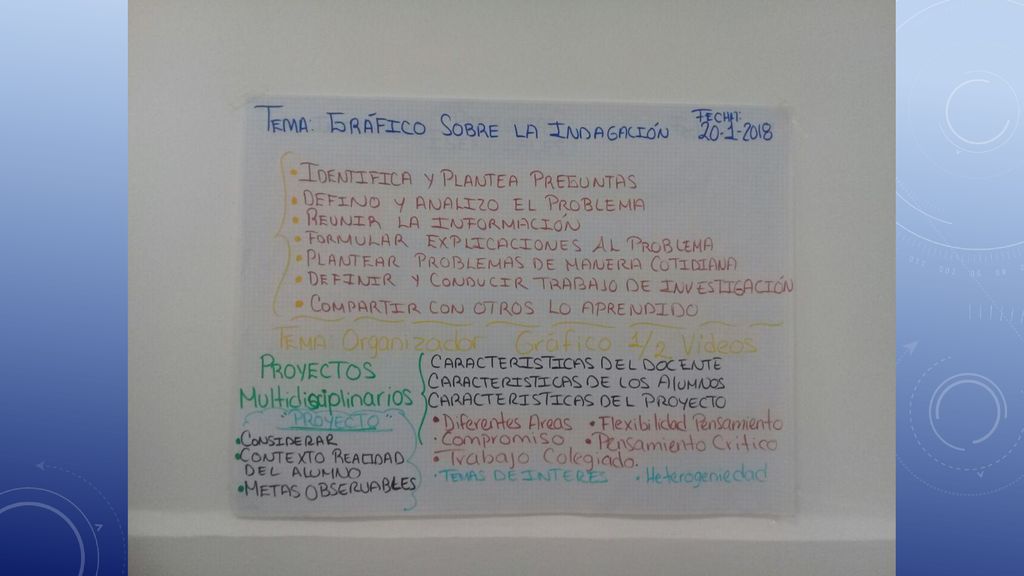 TEMA: GRÁFICO SOBRE LA INDAGACIÓN
FECHA:
20-1-2018
• IDENTIFICA Y PLANTEA PREGUNTAS
• DEFINO Y ANALIZO EL PROBLEMA
• REUNIR LA INFORMACIÓN
• FORMULAR EXPLICACIONES AL PROBLEMA
• PLANTEAR PROBLEMAS DE MANERA COTIDIANA
• DEFINIR Y CONDUCIR TRABAJO DE INVESTIGACIÓN
• COMPARTIR CON OTROS LO APRENDIDO
TEMA: Organizador Gráfico 1/2 Videos
PROYECTOS
Multidisciplinarios
"PROYECTO"
• CONSIDERAR
• CONTEXTO REALIDAD
DEL ALUMNO
• METAS OBSERVABLES
CARACTERISTICAS DEL DOCENTE
CARACTERISTICAS DE LOS ALUMNOS
CARACTERISTICAS DEL PROYECTO
• Diferentes Areas • Flexibilidad Pensamiento
• Compromiso • Pensamiento Critico
• Trabajo Colegiado.
• TEMAS DE INTERES • Heterogeniedad